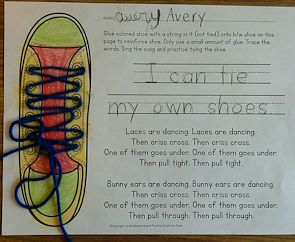 NAME Avery Avery
Glue colored shoe with a string in it (not tied) onto b/w shoe on this
page to reinforce shoe. Only use a small amount of glue. Trace the
words. Sing the song and practice tying the shoe.
I can tie
my own shoes.
Laces are dancing. Laces are dancing.
Then criss cross. Then criss cross.
One of them goes under. One of them goes under.
Then pull tight. Then pull tight.
Bunny ears are dancing. Bunny ears are dancing.
Then criss cross. Then criss cross.
One of them goes under. One of them goes under.
Then pull through. Then pull through.